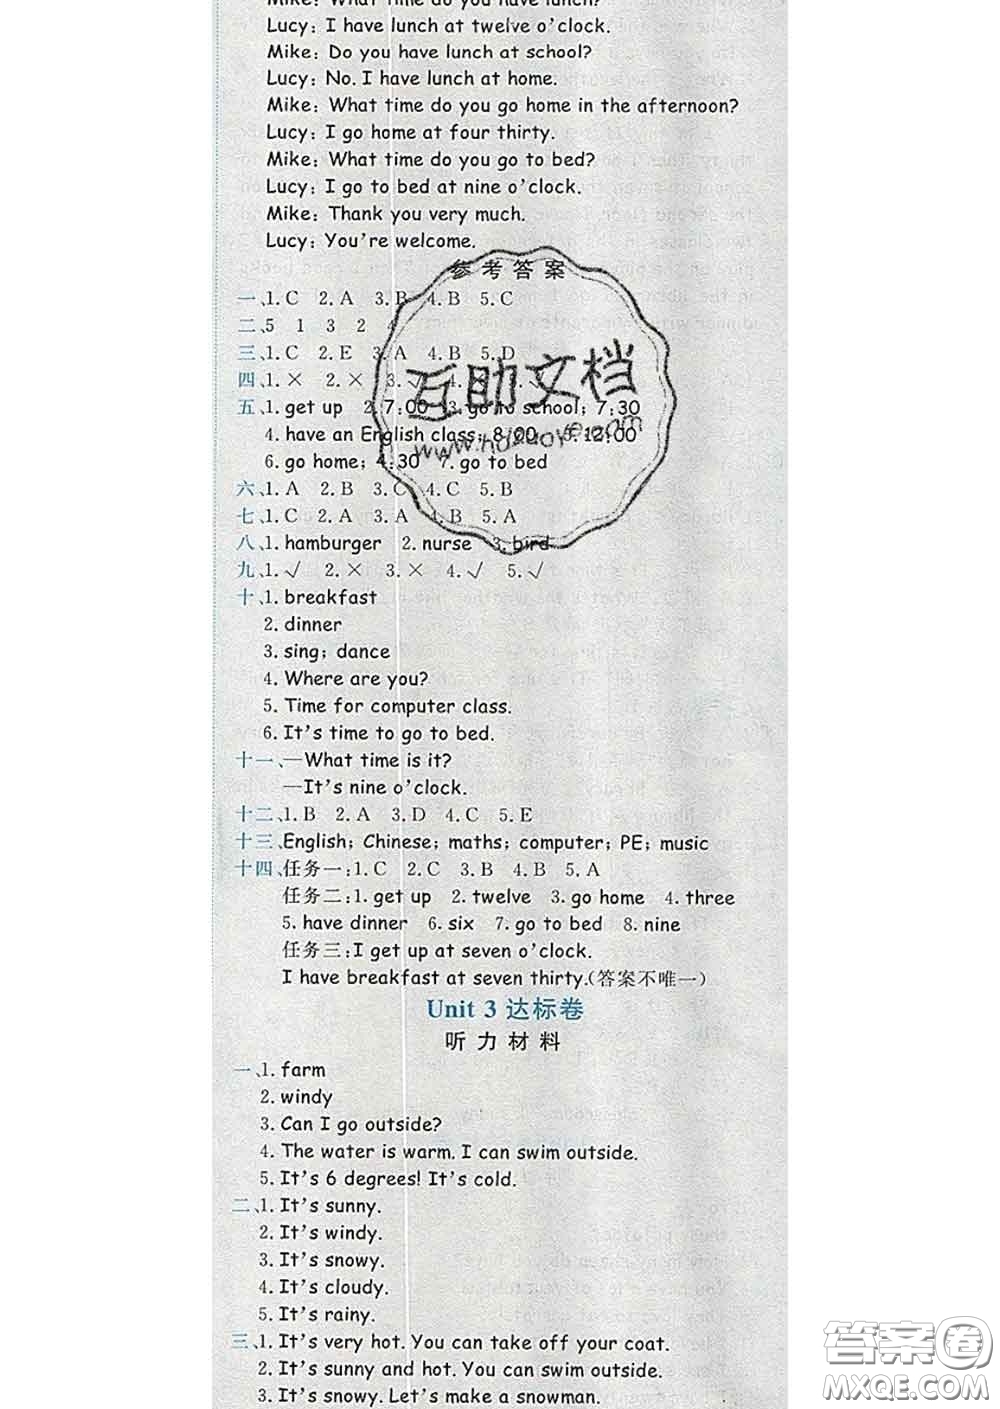 Mike: What time do you have lunch?
Lucy: I have lunch at twelve o'clock.
Mike: Do you have lunch at school?
Lucy: No. I have lunch at home.
Mike: What time do you go home in the afternoon?
Lucy: I go home at four thirty.
Mike: What time do you go to bed?
Lucy: I go to bed at nine o'clock.
Mike: Thank you very much.
Lucy: You're welcome.
参考答案
一、1. C 2. A 3. B 4. B 5. C
二、5 1 3 2 4
三、1. C 2. E 3. A 4. B 5. D
四、1. × 2. × 3. √ 4. 5. √
五、1. get up 2. 7:00 3. go to school; 7:30
4. have an English class; 8:00 5. 12:00
6. go home; 4:30 7. go to bed
六、1. A 2. B 3. C 4. C 5. B
七、1. C 2. A 3. A 4. B 5. A
八、1. hamburger 2. nurse 3. bird
九、1. √ 2. × 3. × 4. √ 5. √
十、1. breakfast
2. dinner
3. sing; dance
4. Where are you?
5. Time for computer class.
6. It's time to go to bed.
十一、—What time is it?
—It's nine o'clock.
十二、1. B 2. A 3. D 4. C 5. E
十三、English; Chinese; maths; computer; PE; music
十四、任务一:1. C 2. C 3. B 4. B 5. A
任务二:1. get up 2. twelve 3. go home 4. three
5. have dinner 6. six 7. go to bed 8. nine
任务三:I get up at seven o'clock.
I have breakfast at seven thirty.(答案不唯一)
Unit 3 达标卷
听力材料
一、1. farm
2. windy
3. Can I go outside?
4. The water is warm. I can swim outside.
5. It's 6 degrees! It's cold.
二、1. It's sunny.
2. It's windy.
3. It's snowy.
4. It's cloudy.
5. It's rainy.
三、1. It's very hot. You can take off your coat.
2. It's sunny and hot. You can swim outside.
3. It's snowy. Let's make a snowman.
互助文档
www.hdzuoye.com
答案圈
MXQE.COM